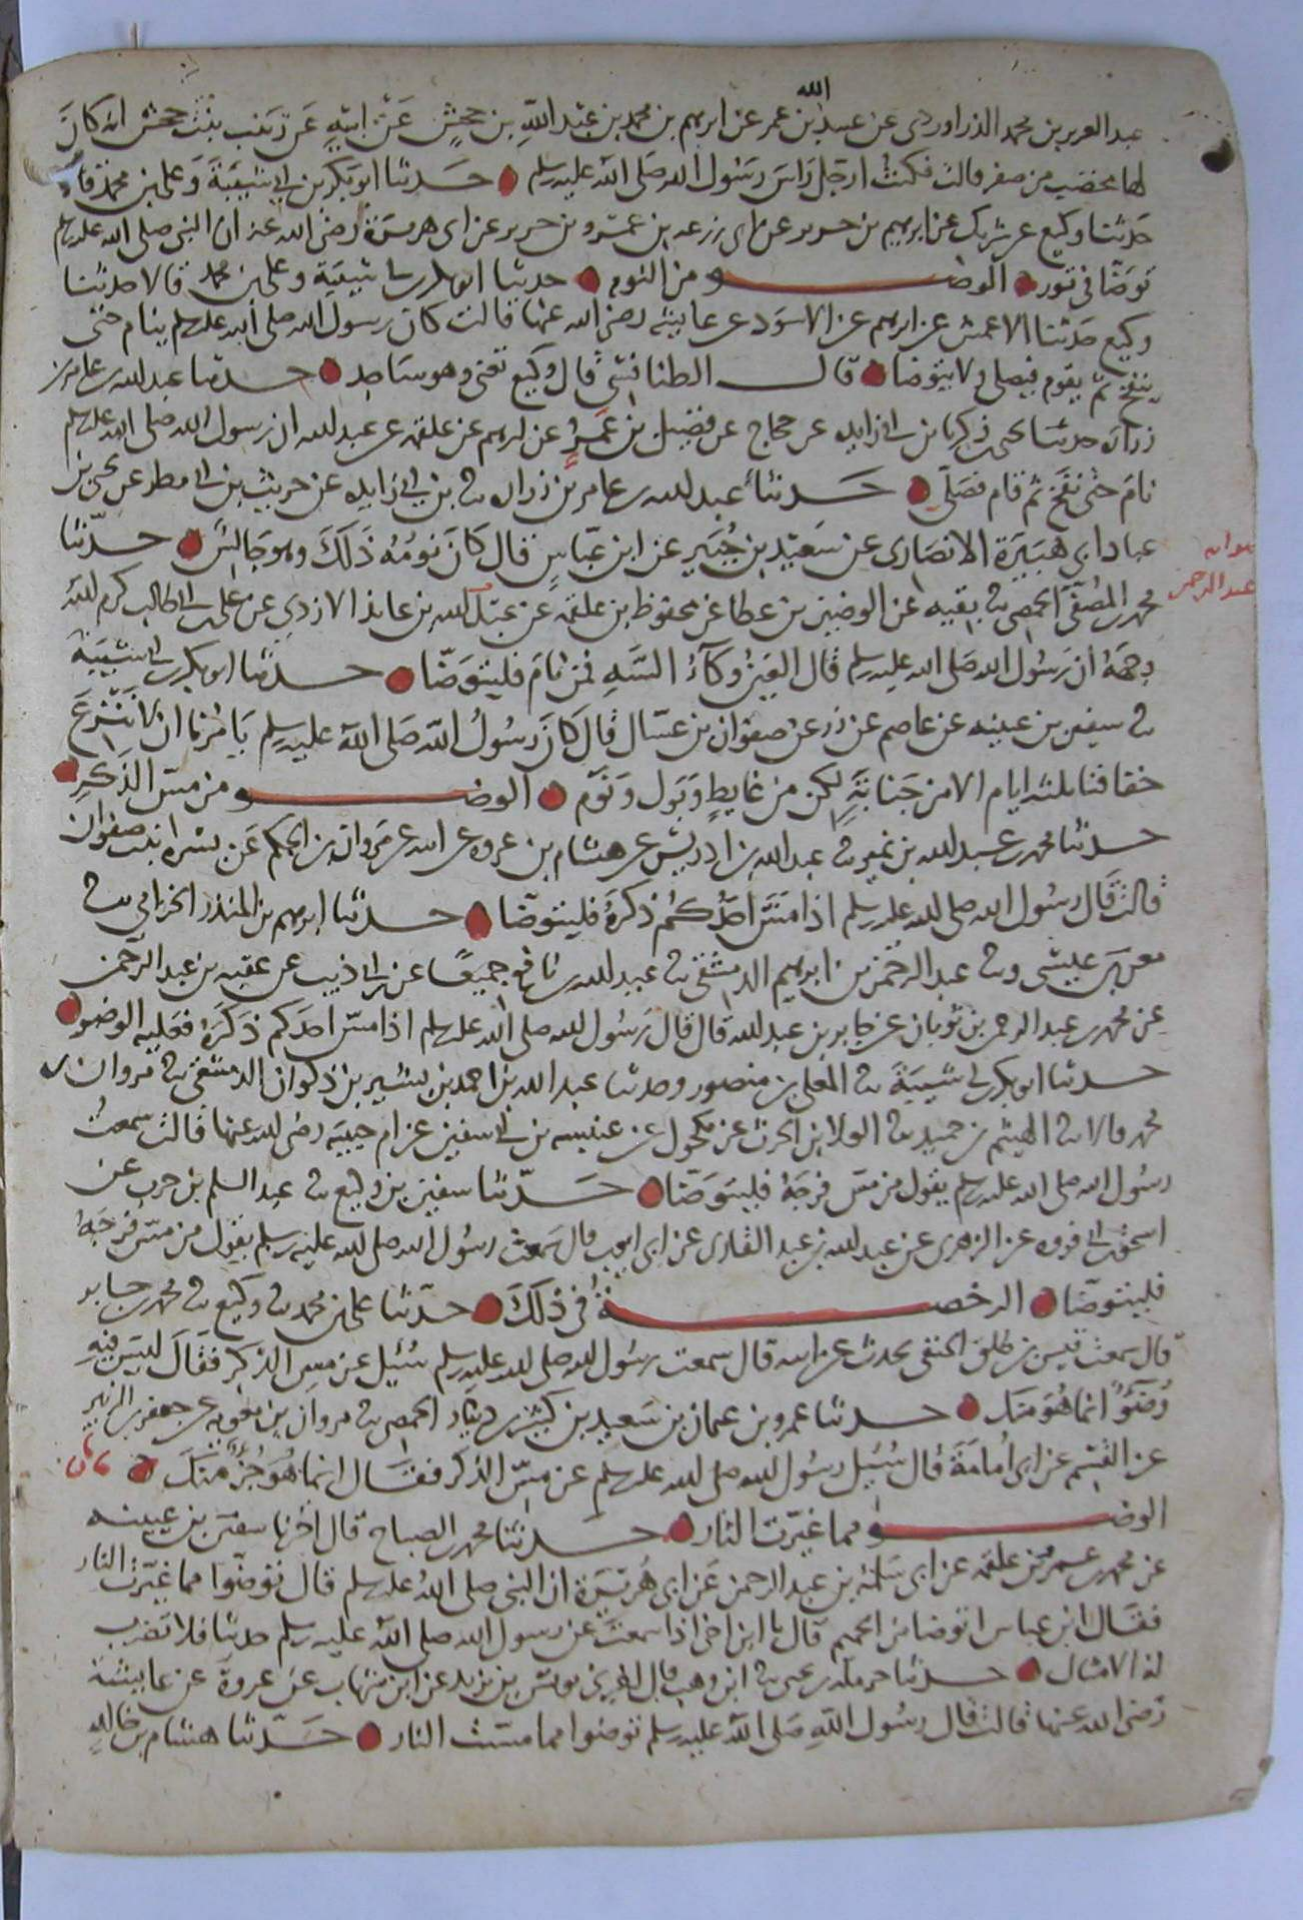 الله
عبد العزيز بن محمد الدراوردى عن عبيد بن عمر عن ابرهيم بن محمد بن عبد الله بن جحش عن ابيه عن زينب بنت جحش انه كان
لها مخضب من صفر قالت فكنت ارجل راس رسول الله صلى الله عليه وسلم حدثنا ابو بكر بن ابى شيبة وعلى بن محمد قالا
حدثنا وكيع عن شريك عن ابرهيم بن جرير عن ابى زرعه بن عمرو بن جرير عن ابى هريرة رضى الله عنه ان النبى صلى الله عليه وسلم
توضا فى تور الوضو من النوم حدثنا ابو بكر بن ابى شيبة وعلى بن محمد قالا حدثنا
وكيع حدثنا الاعمش عن ابرهيم عن الاسود عن عايشه رضى الله عنها قالت كان رسول الله صلى الله عليه وسلم ينام حتى
ينفخ ثم يقوم فيصلى ولا يتوضا قال الطنافسى قال وكيع تعنى وهو ساجد حدثنا عبد الله بن عامر بن
زراره حدثنا يحيى بن زكريا بن ابى زايده عن حجاج عن فضيل بن عمرو عن ابرهيم عن علقمه عن عبد الله ان رسول الله صلى الله عليه وسلم
نام حتى نفخ ثم قام فصلى حدثنا عبد الله بن عامر بن زراره ثنا بن ابى زايده عن حريث بن ابى مطر عن يحيى بن
عباد ابى هبيرة الانصارى عن سعيد بن جبير عن ابن عباس قال كان نومه ذلك وهو جالس حدثنا
عبد الرحمن
محمد بن المصفى الحمصى ثنا بقيه عن الوضين بن عطا عن محفوظ بن علقمه عن عبد الله بن عايذ الازدى عن على بن ابى طالب كرم الله
وجهه ان رسول الله صلى الله عليه وسلم قال العين وكاء السه فمن نام فليتوضا حدثنا ابو بكر بن ابى شيبة
ثنا سفين بن عيينه عن عاصم عن زر عن صفوان بن عسال قال كان رسول الله صلى الله عليه وسلم يامرنا ان لا ننزع
خفافنا ثلثه ايام الا من جنابة لكن من غايط وبول ونوم الوضو من مس الذكر
حدثنا محمد بن عبد الله بن نمير ثنا عبد الله بن ادريس عن هشام بن عروه عن ابيه عن مروان بن الحكم عن بسرة ابنت صفوان
قالت قال رسول الله صلى الله عليه وسلم اذا مس احدكم ذكره فليتوضا حدثنا ابرهيم بن المنذر الحزامى ثنا
معن بن عيسى وثنا عبد الرحمن بن ابرهيم الدمشقى ثنا عبد الله بن نافع جميعا عن ابن ابى ذيب عن عقبه بن عبد الرحمن
عن محمد بن عبد الرحمن بن ثوبان عن جابر بن عبد الله قال قال رسول الله صلى الله عليه وسلم اذا مس احدكم ذكره فعليه الوضو
حدثنا ابو بكر بن ابى شيبة ثنا المعلى بن منصور وحدثنا عبد الله بن احمد بن بشير بن ذكوان الدمشقى ثنا مروان بن
محمد قالا ثنا الهيثم بن حميد ثنا العلا بن الحرث عن مكحول عن عنبسه بن ابى سفين عن ام حبيبه رضى الله عنها قالت سمعت
رسول الله صلى الله عليه وسلم يقول من مس فرجه فليتوضا حدثنا سفين بن وكيع ثنا عبد السلم بن حرب عن
اسحق بن ابى فروه عن الزهرى عن عبد الله بن عبد القارى عن ابى ايوب قال سمعت رسول الله صلى الله عليه وسلم يقول من مس فرجه
فليتوضا الرخصة فى ذلك حدثنا على بن محمد ثنا وكيع ثنا محمد بن جابر
قال سمعت قيس بن طلق الحنفى يحدث عن ابيه قال سمعت رسول الله صلى الله عليه وسلم سئل عن مس الذكر فقال ليس فيه
وضوء انما هو منك حدثنا عمرو بن عثمان بن سعيد بن كثير بن دينار الحمصى ثنا مروان بن معويه عن جعفر بن الزبير
عن القسم عن ابى امامة قال سئل رسول الله صلى الله عليه وسلم عن مس الذكر فقال انما هو جزء منك
الوضو مما غيرت النار حدثنا محمد بن الصباح قال اخبرنا سفين بن عيينه
عن محمد بن عمرو بن علقمه عن ابى سلمة بن عبد الرحمن عن ابى هريرة ان النبى صلى الله عليه وسلم قال توضوا مما غيرت النار
فقال ابن عباس اتوضا من الحميم قال يا ابن اخى اذا سمعت عن رسول الله صلى الله عليه وسلم حديثا فلا تضرب
له الامثال حدثنا حرملة بن يحيى ثنا ابن وهب قال اخبرنى يونس بن يزيد عن ابن شهاب عن عروة عن عايشة
رضى الله عنها قالت قال رسول الله صلى الله عليه وسلم توضوا مما مست النار حدثنا هشام بن خالد